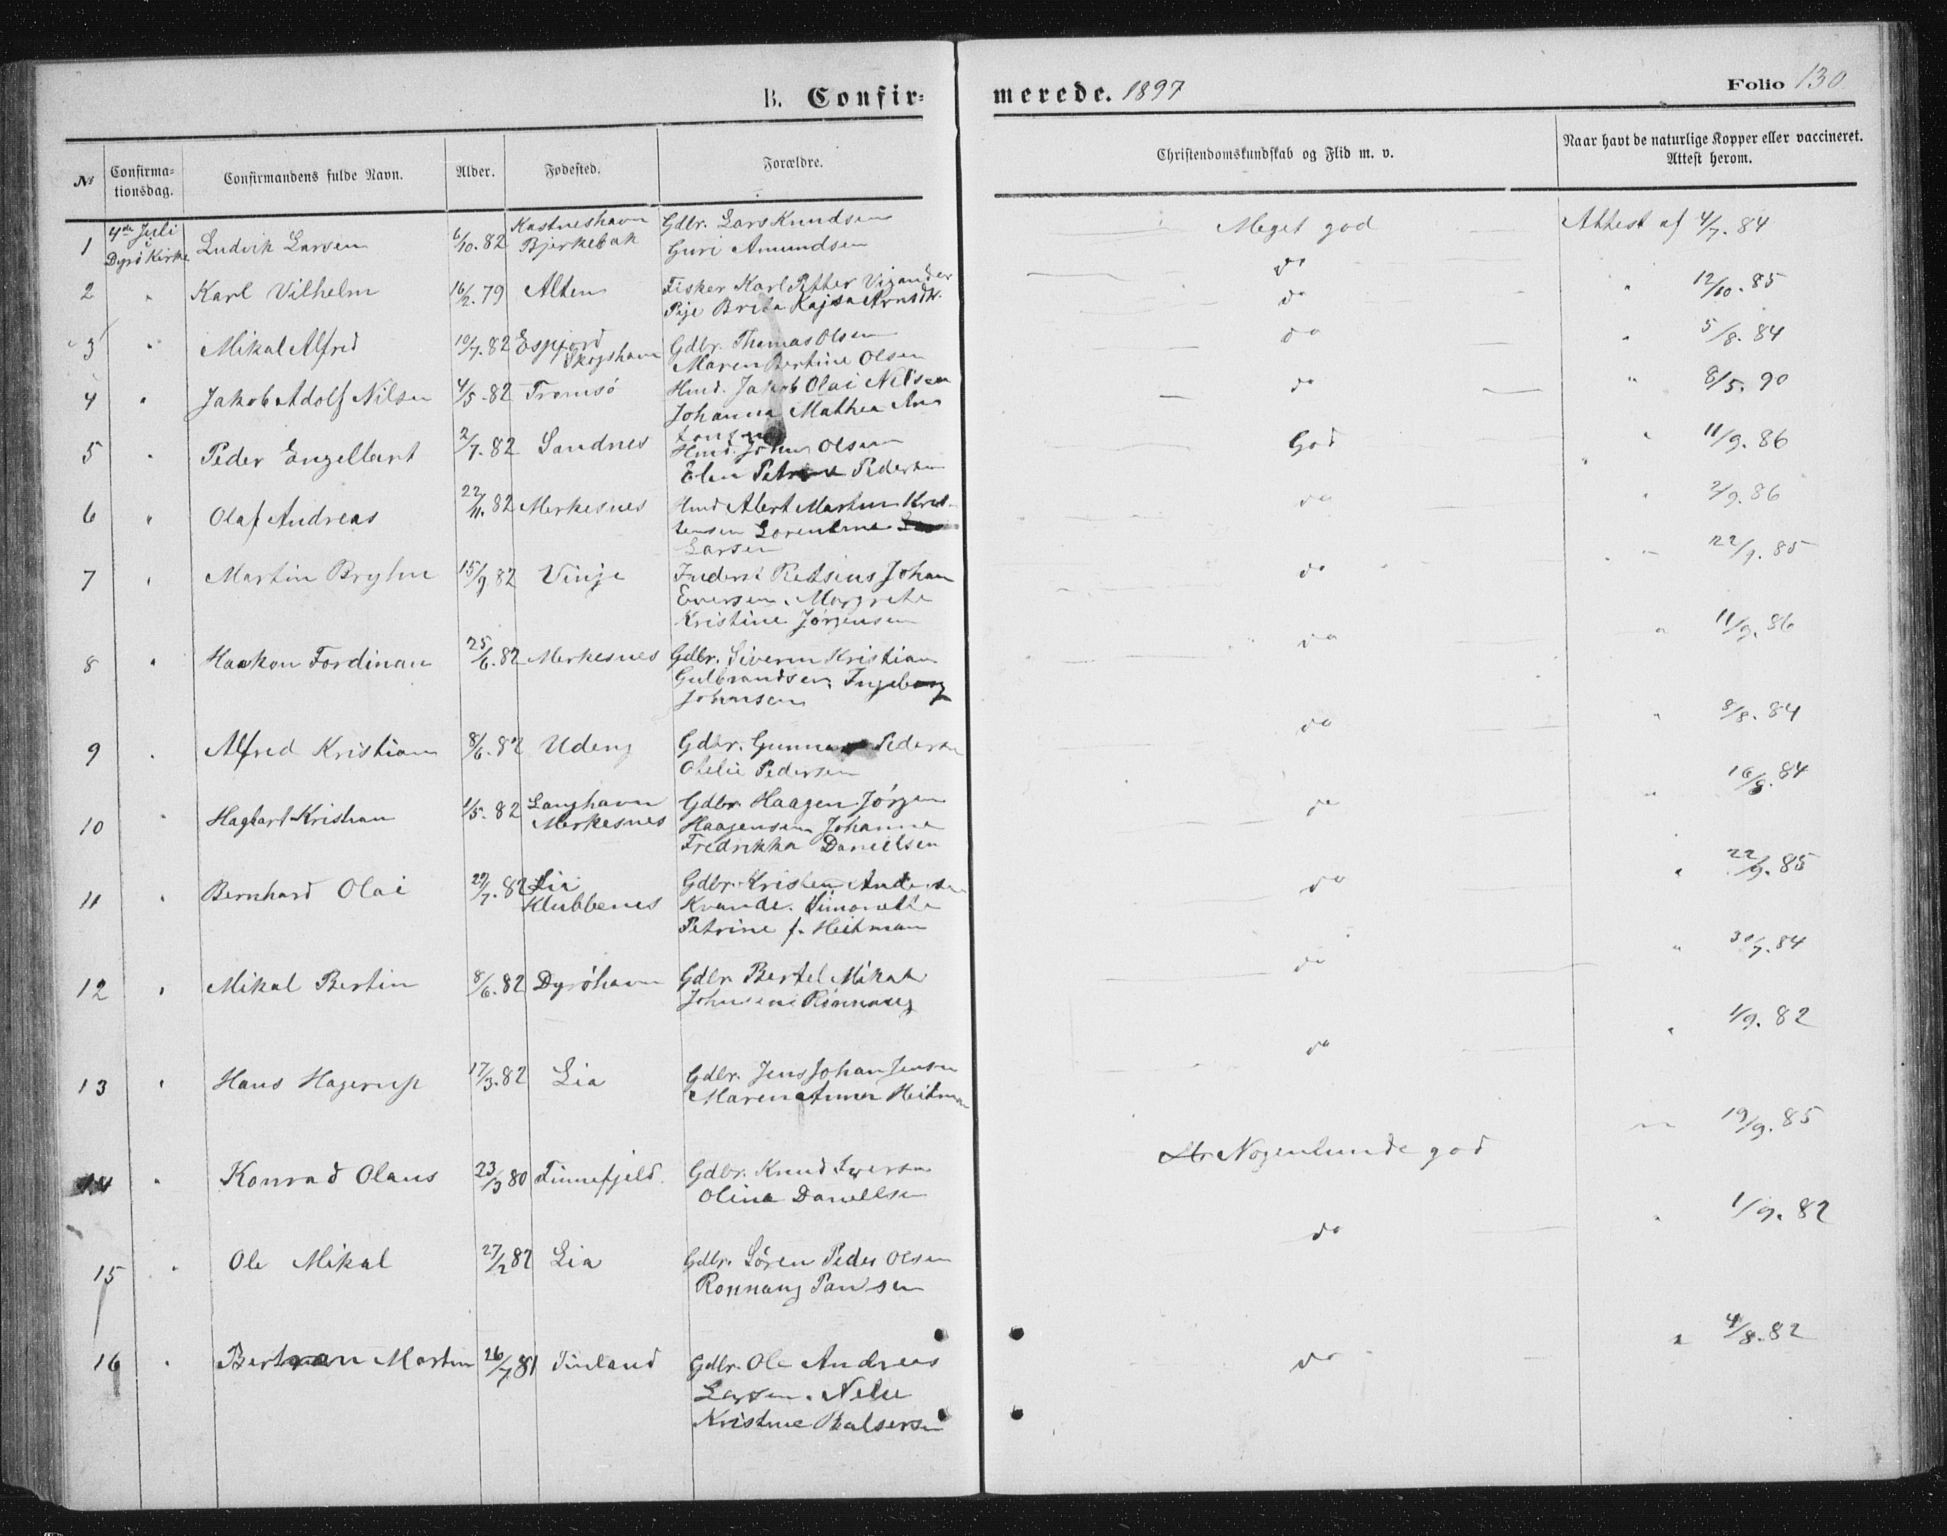 B. Confir= merede. 1897 Folio 130
No Confirma-tionsdag. Confirmandens fulde Navn. Alder. Fødested. Forældre. Christendomskundskab og Flid m. v. Naar havt de naturlige Kopper eller vaccineret. Attest herom.
1 4de Juli i Dyrö Kirke Ludvik Larsen 6/10.82 Kastneshavn Gdbr. Lars Knudsen Meget god Attest af 4/7.84
Bjerkebak Guri Amundsen
2 " Karl Vilhelm 16/2.79 Alten Fisker Karl Petter Vigander do " 12/10.85
Pige Brita Kajsa Arnsdtr. do
3 " Mikal Alfred 10/7.82 Espejord Gdbr. Thomas Olsen do " 5/8.84
Skogshavn Maren Bertine Olsen
4 " Jakob Adolf Nilsen 4/5.82 Tromsö Hmd. Jakob Olai Nilsen do " 8/5.90
Johanna Mathea An
tonsen
5 " Peder Engelbart 2/7.82 Sandnes Hmd. Johan Olsen God " 11/9.86
Elen Petrine Pedersen
6 " Olaf Andreas 22/11.82 Merkesnes Hmd Albert Martin Kris- do " 2/9.86
tensen Lorentine
Larsen
7 " Martin Brylm 15/9 82 Vinje Inderst Johan do " 22/9.85
Eversen. Margrete
Kristine Jørgensen
8 " Haakon Fordinan 25/6.82 Merkesnes Gdbr. Siveren Kristian do " 11/9.86
Gulbrandsen, Ingeborg
Johansen
9 " Alfred Kristian 8/6.82 Udeng Gdbr. Gunnar Pedersen do " 8/8.84
Otelie Pedersen
10 " Hagbart Kristian 1/5.82 Langhavn Gdbr Haagen Jörgen do " 16/8.84
Merkesnes Haagensen Johanne
Fredrikka Danielsen
11 " Bernhard Olai 29/7.82 Lia Gdbr. Kristen Andersen do " 22/9.85
Klubbenes Kvande. Simonette
Petrine f. Heitman
12 " Mikal Bertin 8/6.82 Dyröhavn Gdbr Bertel Mikal do " 30/7.84
Johnsen Rönnaug
13 " Hans Hagerup 17/3.82 Lia Gdbr. Jens Johan Jensen do " 1/9.82
Maren Anna Heitman
14 " Konrad Olaus 23/3 80 Finnefjeld. Gdbr. Knud Iversen Nogenlunde god " 19/9.85
Olina Daniellsen
15 " Ole Mikal 27/2 82 Lia Gdbr. Sören Peder Olsen do " 1/9.82
Ronnaug
16 " Bertran Martin 26/7 81 Finland Gdbr. Ole Andreas do " 4/8.82
Larsen. Nelie
Kristine Balsersen